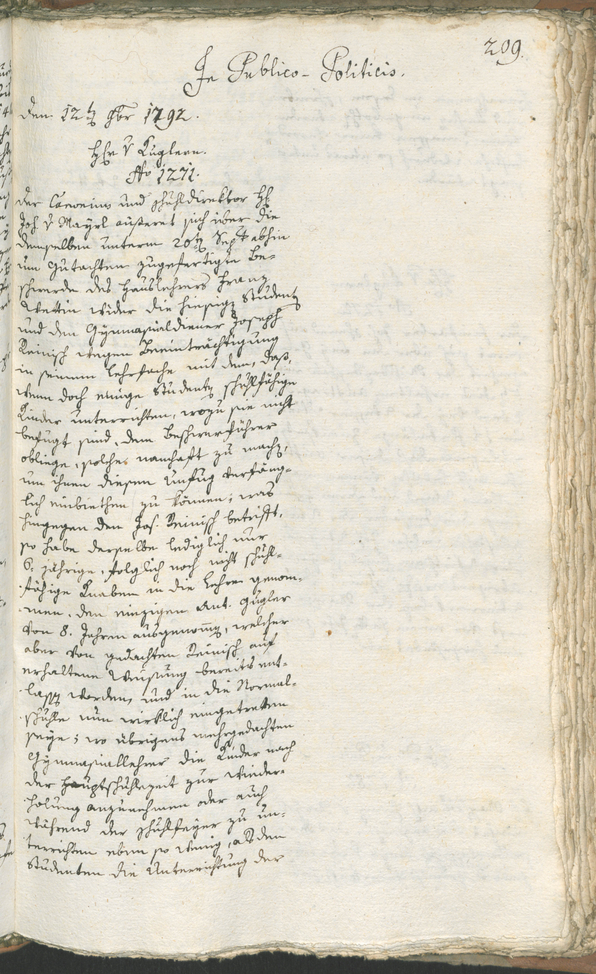 209.
In Publico-Politicis.
Den 12t 8br 1792.
Hhr v Kuglern.
No 1271.
Der Caesareino und Schuldirektor Hh
Joh v Mayrl äußeret sich über die
demselben unterm 20t Sept abhin
um Gutachten zugefertigte Be-
schwerde des Hauslehrers Franz
Wettin wider die hiesige Studentn
und den Gymnasialdiener Joseph
Reinisch wegen Beeinträchtigung
in seinem Lehrfache mit dem, daß,
wenn doch einige Studentn schuhlfähige
Kinder unterrichten, wozu sie nicht
befugt sind, dem Beschwerführer
obliege, solche namhaft zu machn,
um ihnen diesen Unfug verfäng-
lich einbiethen zu können; was
hingegen den Jos. Reinisch betrift,
so habe derselbe lediglich nur
6. jährige, folglich noch nicht schuhl-
fähige Knaben in die Lehre genom-
men, den einzigen Ant. Gugler
von 8. Jahren ausgenomm, welcher
aber von gedachten Reinisch auf
erhaltene Weisung bereits ent-
lassn worden, und in die Normal-
schuhle nun wirklich eingetretten
seye; wo übrigens mehrgedachten
Gymnasiallehrer die Kinder nach
der Hauptschuhlzeit zur Wieder-
holung anzunehmen oder auch
während der Schuhlfeyer zu un-
terrichten eben so wenig, als den
Studenten die Unterrichtung der